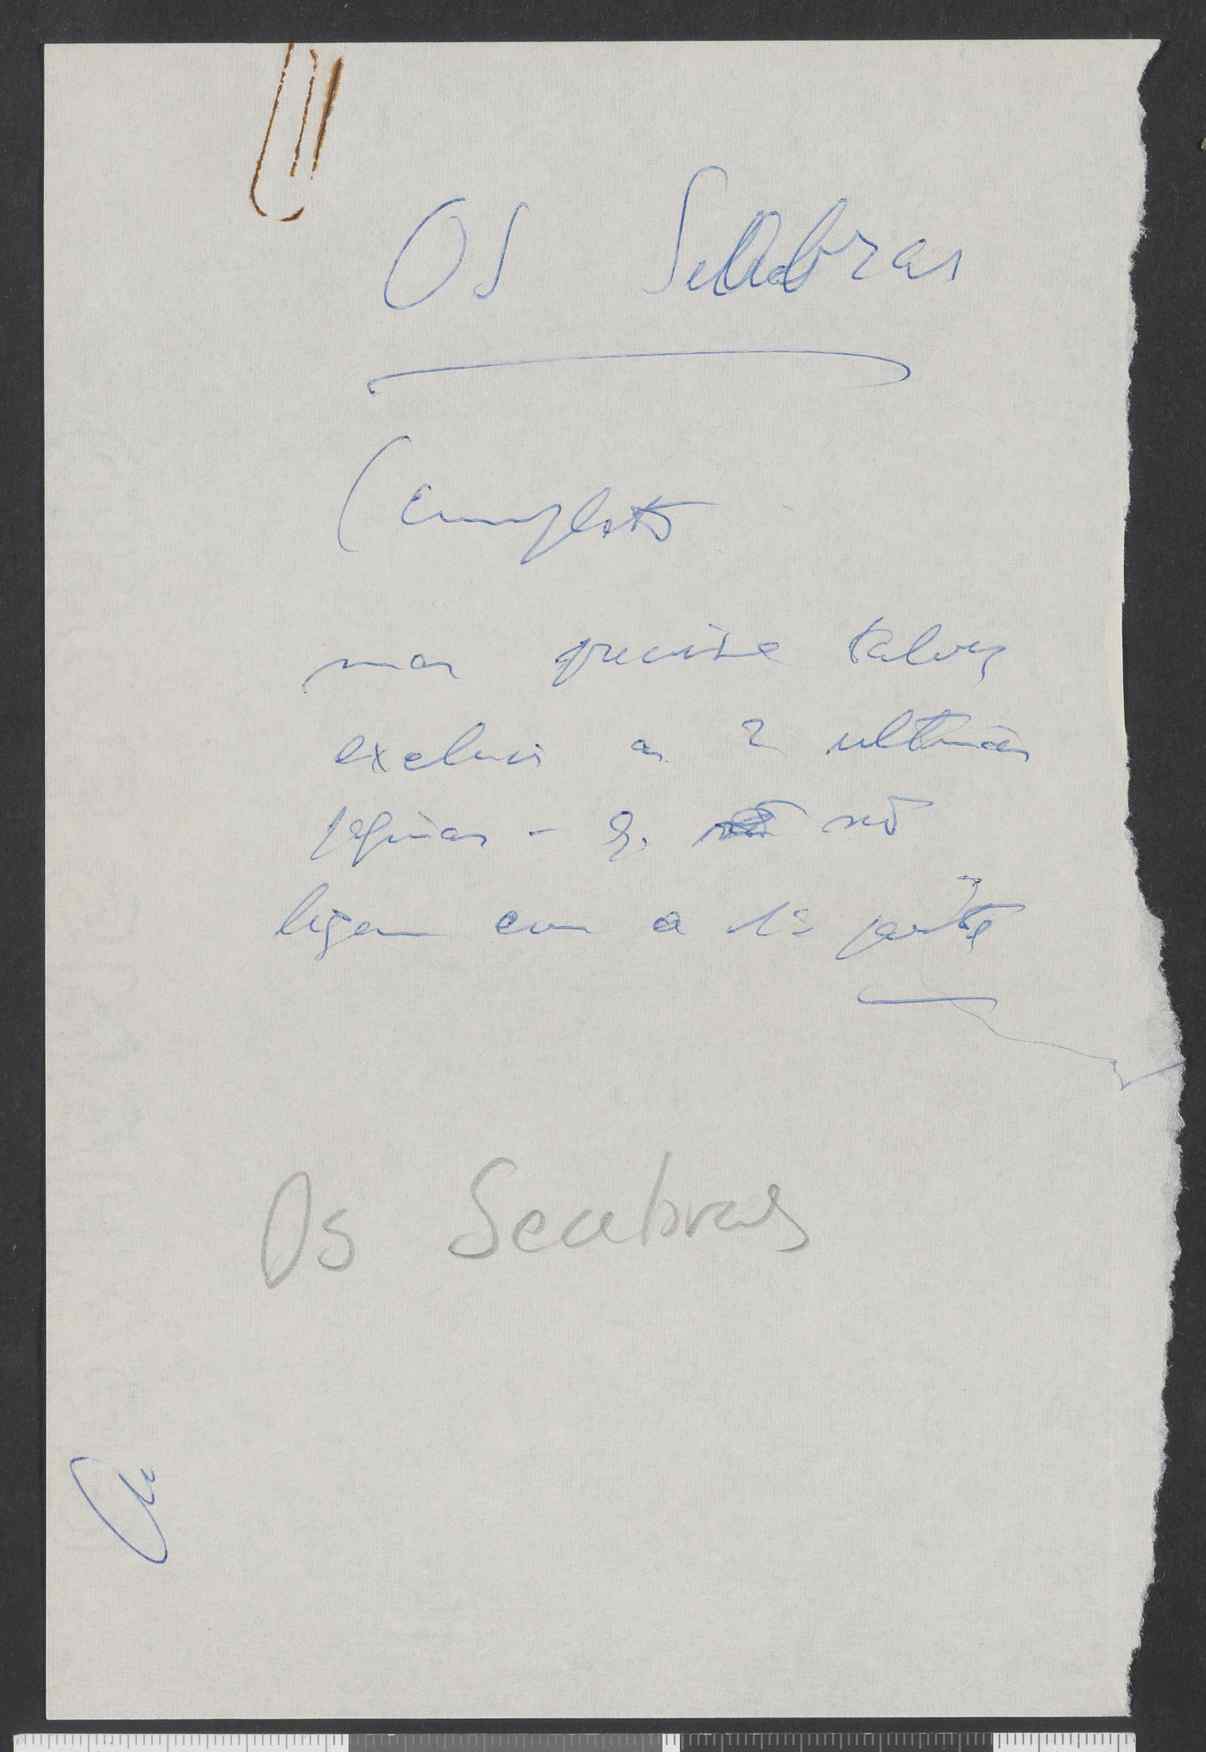 Os Seabras
(completo
mas precisa talvez
excluir as 2 ultimas
páginas - q. não
ligam com a 1ª parte
Os Seabras